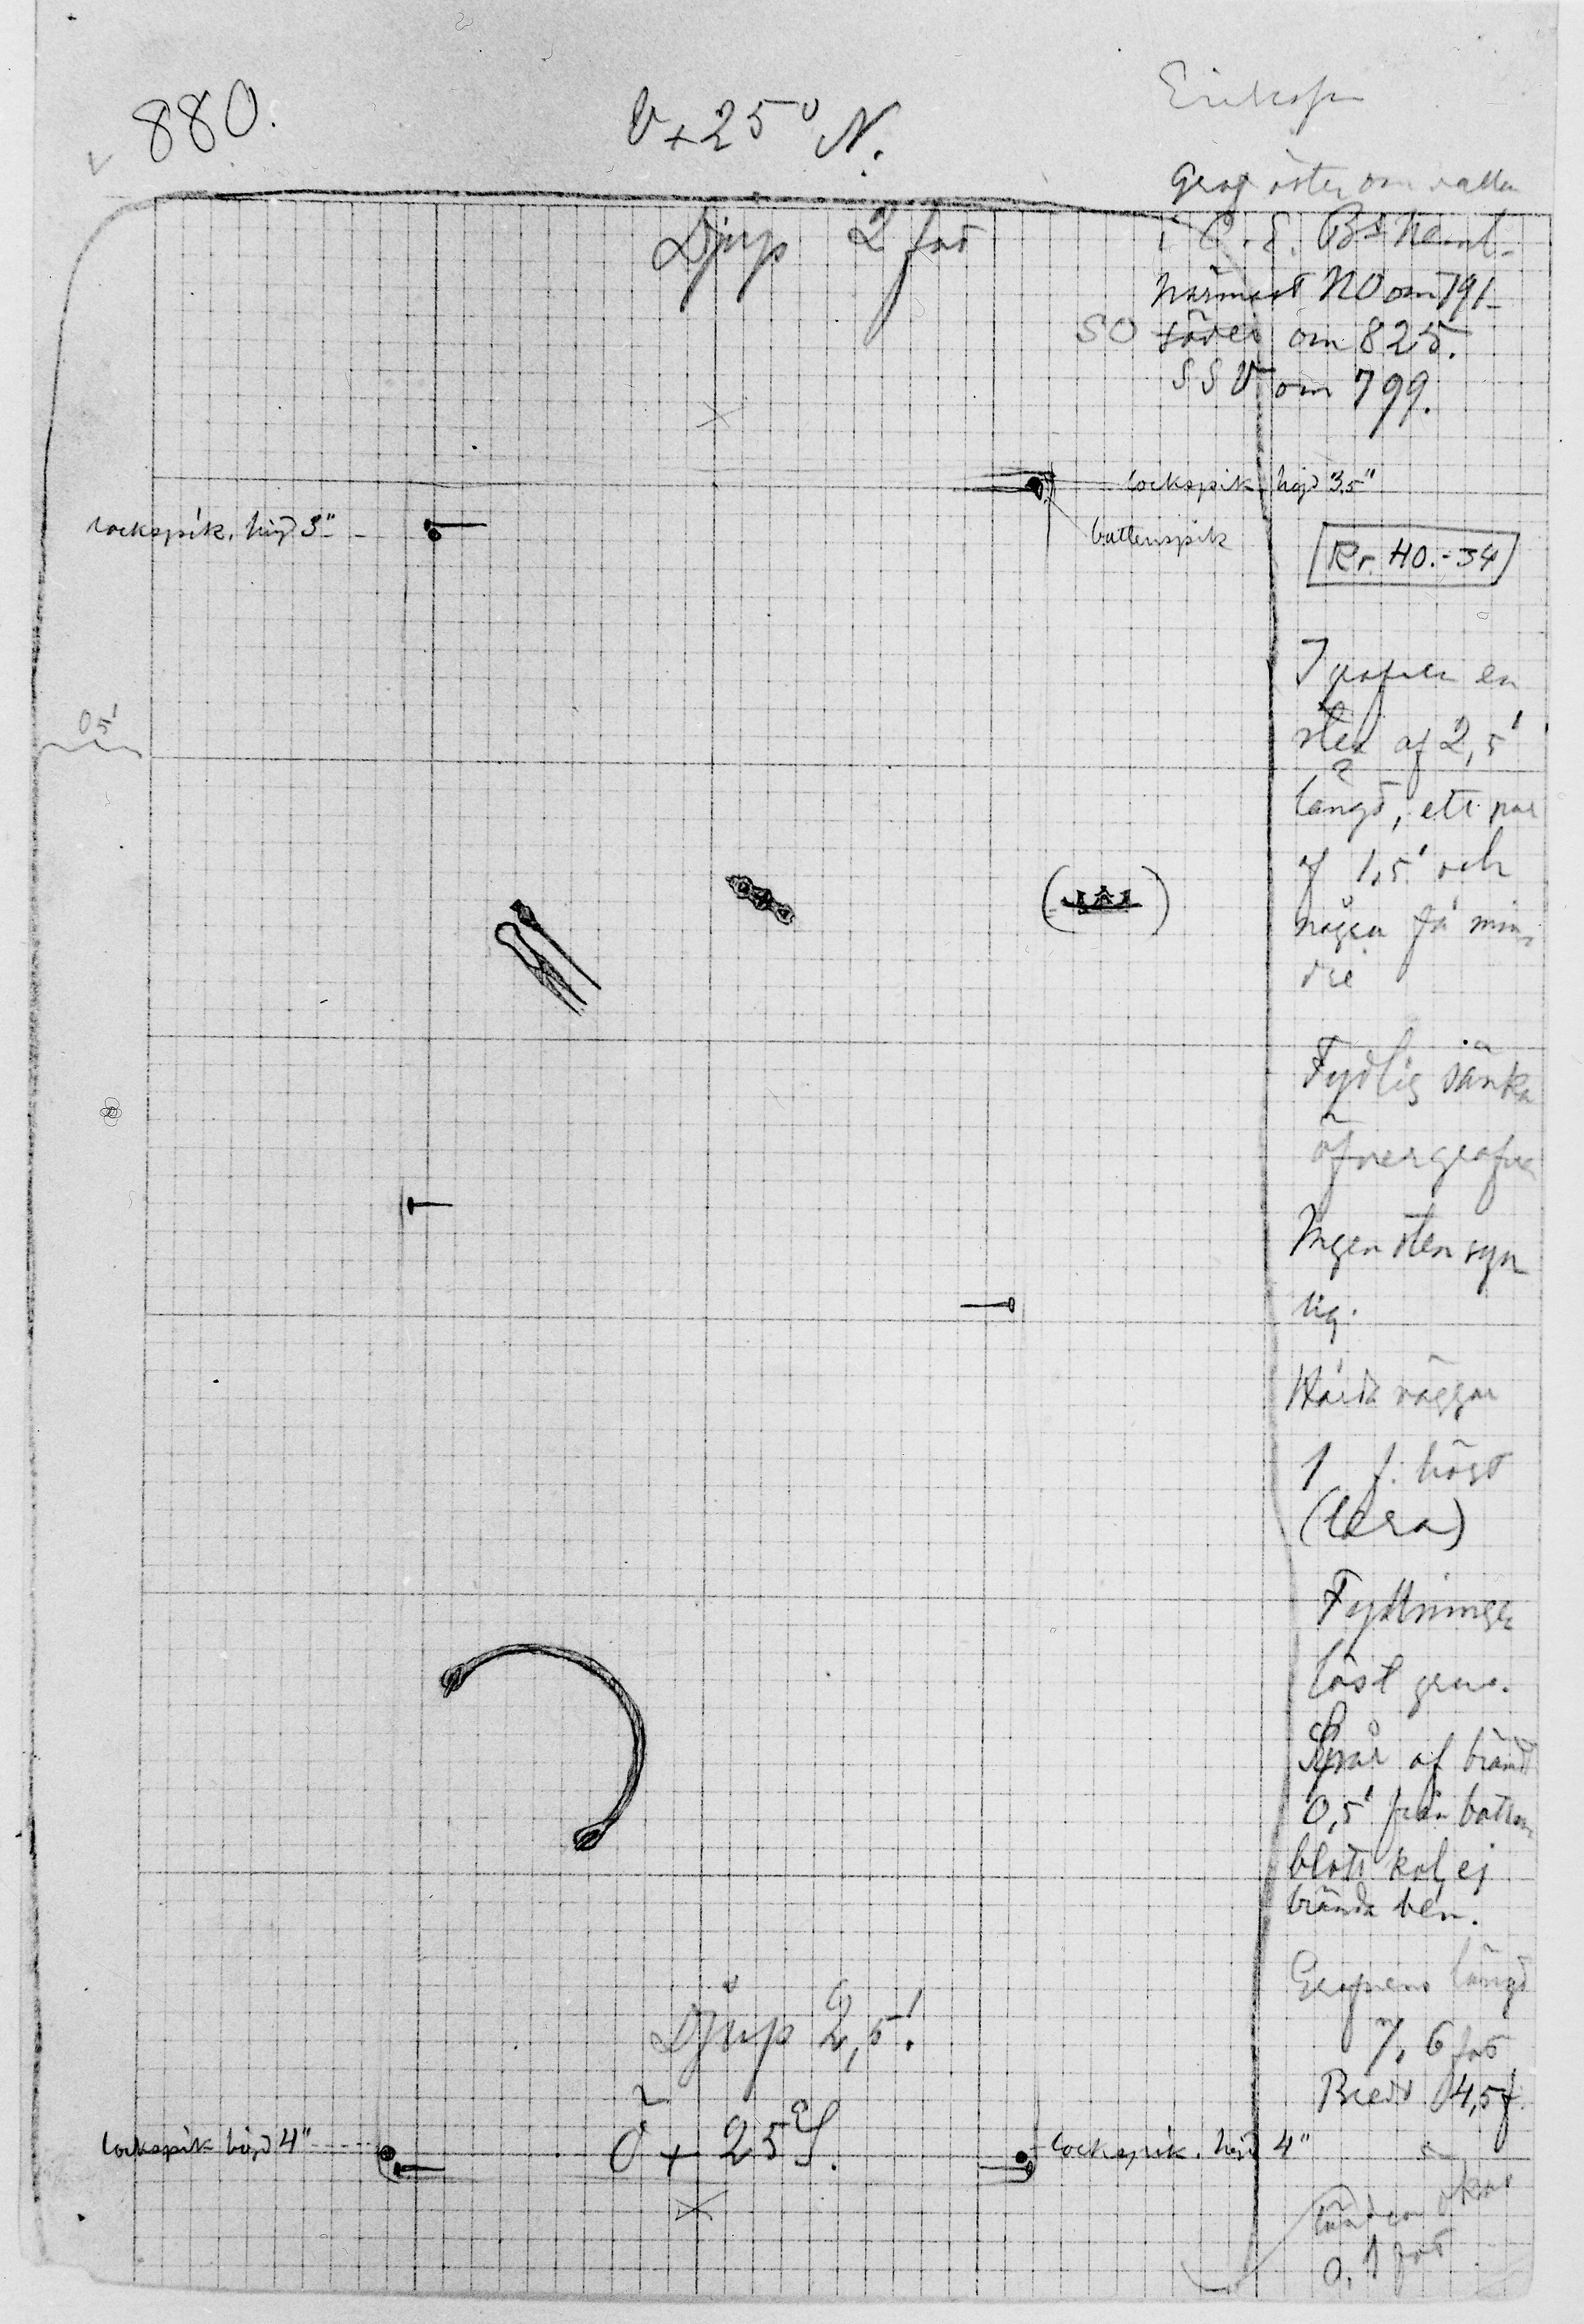 880.
V+25° N.
Graf öster om vallen
Djup 2 fot
närmast NO om 791
SO söder om 825.
SSV om 799.
lockspik, höjd 3.5"
lockspik, höjd 3"
bottenspik
Kr. HO.-34
I grafven en
sten af 2,5'
05'
längd, ett par
af 1,5' och
några få min-
dre
Tydlig sänka
öfver grafven
Ingen sten syn
lig.
Hårda väggar
1 f. högt
(lera)
Fyllningen
löst grus.
Spår af brand
0,5' från botten
blott kol, ej
brända ben.
Grafvens längd
7,6 fot
Djup 2,5'.
Bredd 4,5 f.
Ö + 25° S.
lockspik höjd 4"
lockspik, höjd 4"
0,1 fot